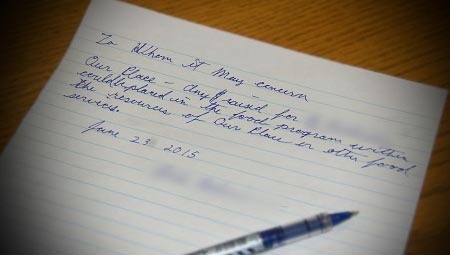 To Whom it May concern
Our Place - any $ raised for
could placed in the food program within
the resources of Our Place or other food
services.
June 23 2015